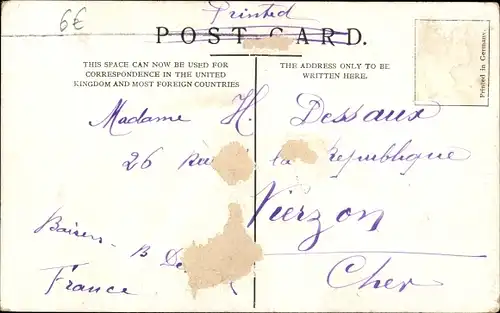 6€
Printed
POST CARD.
THIS SPACE CAN NOW BE USED FOR
CORRESPONDENCE IN THE UNITED
KINGDOM AND MOST FOREIGN COUNTRIES
THE ADDRESS ONLY TO BE
WRITTEN HERE.
Printed in Germany.
Madame H. Dessaux
26 la République
Vierzon
Cher
Baisers - B
France